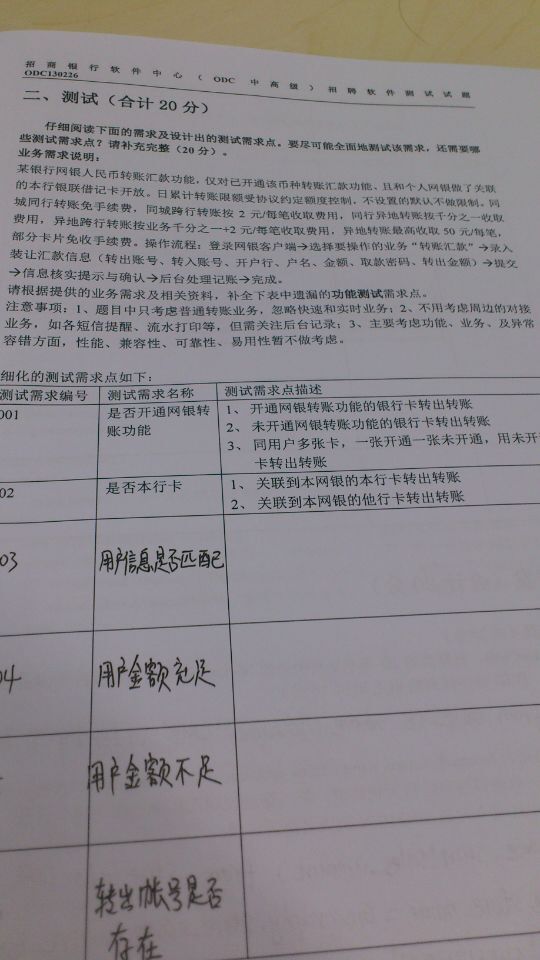 招商银行软件中心（ODC 中高级）招聘软件测试试题
ODC130226
二、测试（合计 20 分）
仔细阅读下面的需求及设计出的测试需求点。要尽可能全面地测试该需求，还需要哪
些测试需求点？请补充完整（20 分）。
业务需求说明：
某银行网银人民币转账汇款功能，仅对已开通该币种转账汇款功能、且和个人网银做了关联
的本行银联借记卡开放。日累计转账限额受协议约定额度控制，不设置的默认不做限制。同
城同行转账免手续费，同城跨行转账按 2 元/每笔收取费用，同行异地转账按千分之一收取
费用，异地跨行转账按业务千分之一+2 元/每笔收取费用，异地转账最高收取 50 元/每笔，
部分卡片免收手续费。操作流程：登录网银客户端→选择要操作的业务“转账汇款”→录入
装让汇款信息（转出账号、转入账号、开户行、户名、金额、取款密码、转出金额）→提交
→信息核实提示与确认→后台处理记账→完成。
请根据提供的业务需求及相关资料，补全下表中遗漏的功能测试需求点。
注意事项：1、题目中只考虑普通转账业务，忽略快速和实时业务；2、不用考虑周边的对接
业务，如各短信提醒、流水打印等，但需关注后台记录；3、主要考虑功能、业务、及异常
容错方面，性能、兼容性、可靠性、易用性暂不做考虑。
细化的测试需求点如下：
测试需求编号 测试需求名称 测试需求点描述
001 是否开通网银转 1、 开通网银转账功能的银行卡转出转账
账功能 2、 未开通网银转账功能的银行卡转出转账
3、 同用户多张卡，一张开通一张未开通，用未开
卡转出转账
02 是否本行卡 1、 关联到本网银的本行卡转出转账
2、 关联到本网银的他行卡转出转账
03 用户信息是否匹配
04 用户金额充足
用户金额不足
转出帐号是否
存在